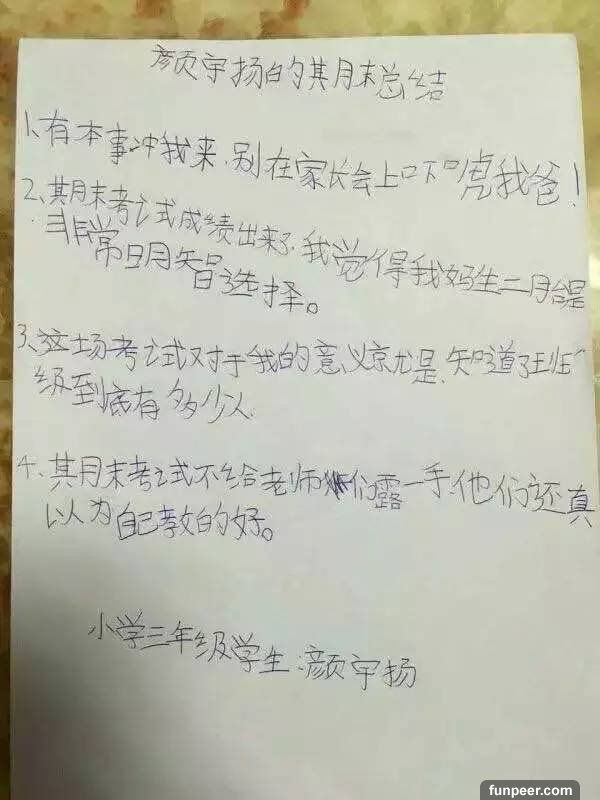 颜宇扬的期末总结
1、有本事冲我来,别在家长会上吓唬我爸!
2、期末考试成绩出来了,我觉得我妈生二胎是
非常明智选择。
3、这场考试对于我的意义就是,知道了班
级到底有多少人.
4、期末考试不给老师们露一手,他们还真
以为自己教的好。
小学三年级学生:颜宇扬
funpeer.com